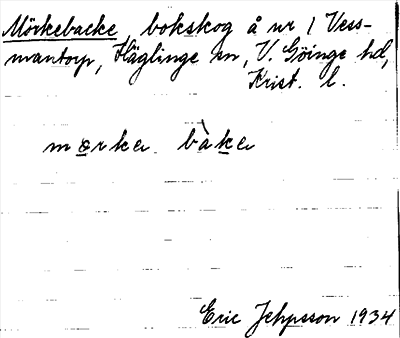 Mörkebacke, bokskog å nr 1 Vess-
mantorp, Häglinge sn, V. Göinge hd,
Krist. l.
mørker bàker
Eric Jeppsson 1934